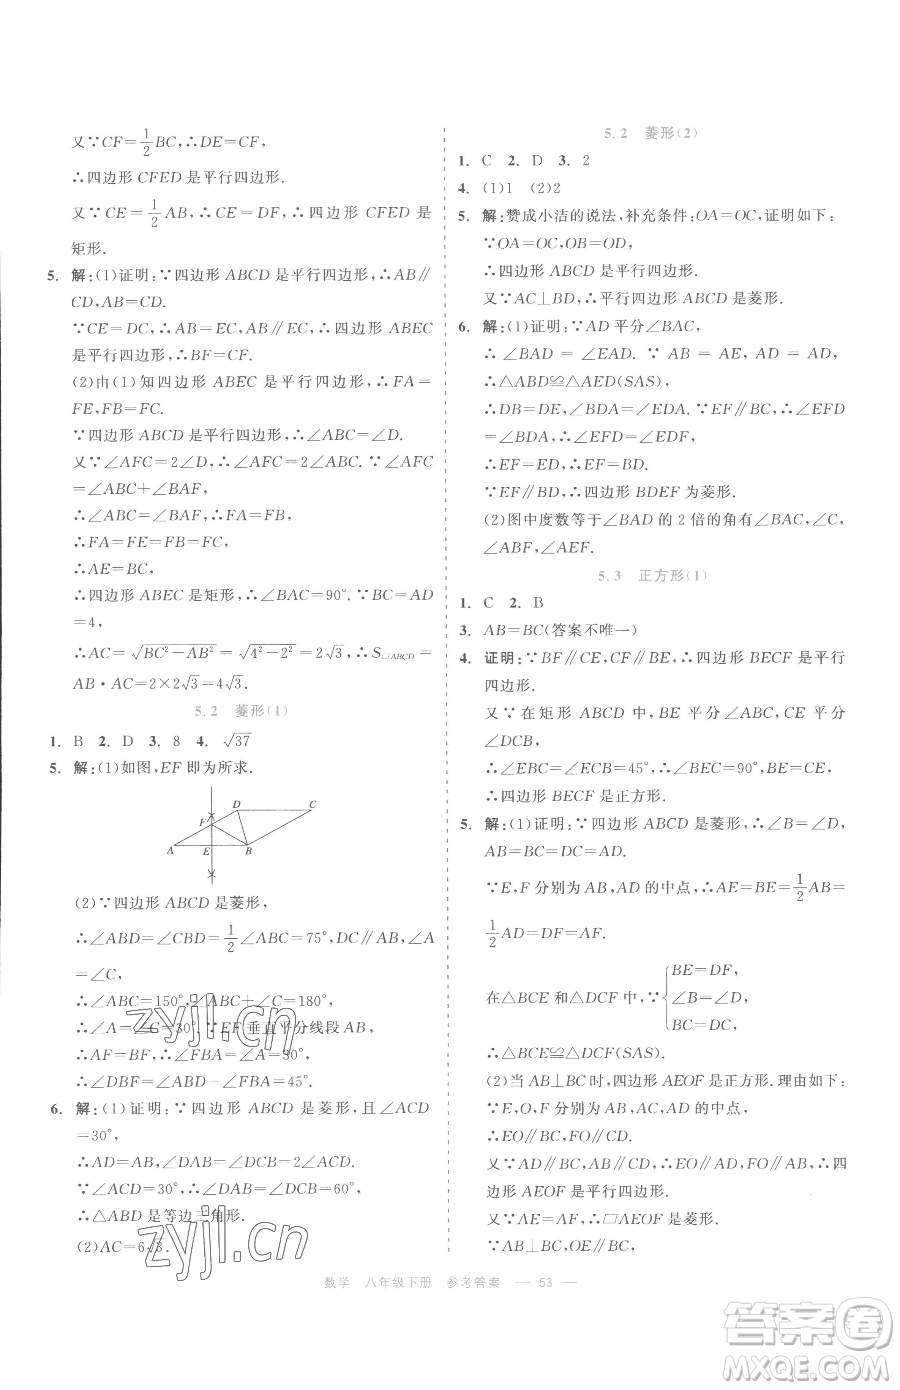 又∵CF=1/2BC,∴DE=CF.
∴四边形 CFED 是平行四边形.
又∵CE=1/2AB,∴CE=DF,∴四边形 CFED 是
矩形.
5. 解:(1)证明:∵四边形 ABCD 是平行四边形,∴AB∥
CD,AB=CD.
∵CE=DC,∴AB=EC,AB∥EC,∴四边形 ABEC
是平行四边形,∴BF=CF.
(2)由(1)知四边形 ABEC 是平行四边形,∴FA=
FE,FB=FC.
∵四边形 ABCD 是平行四边形,∴∠ABC=∠D.
又∵∠AFC=2∠D,∴∠AFC=2∠ABC.∵∠AFC
=∠ABC+∠BAF,
∴∠ABC=∠BAF,∴FA=FB,
∴FA=FE=FB=FC,
∴AE=BC,
∴四边形 ABEC 是矩形,∴∠BAC=90°.∵BC=AD
=4,
∴AC=√(BC²-AB²)=√(4²-2²)=2√3,∴S▱ABCD=
AB·AC=2×2√3=4√3.
5.2 菱形(1)
1. B 2. D 3. 8 4. √37
5. 解:(1)如图,EF 即为所求.
D C
F
A E B
(2)∵四边形 ABCD 是菱形,
∴∠ABD=∠CBD=1/2∠ABC=75°,DC∥AB,∠A
=∠C.
∴∠ABC=150°,∠ABC+∠C=180°,
∴∠A=∠C=30°.∵EF 垂直平分线段 AB,
∴AF=BF,∴∠FBA=∠A=30°,
∴∠DBF=∠ABD-∠FBA=45°.
6. 解:(1)证明:∵四边形 ABCD 是菱形,且∠ACD
=30°,
∴AD=AB,∠DAB=2∠CAB,∠CAB=∠ACD,
∵∠ACD=30°,∴∠DAB=∠DCB=60°,
∴△ABD 是等边三角形.
(2)AC=6√3.
5.2 菱形(2)
1. C 2. D 3. 2
4. (1)1 (2)2
5. 解:赞成小洁的说法,补充条件:OA=OC,证明如下:
∵OA=OC,OB=OD,
∴四边形 ABCD 是平行四边形.
又∵AC⊥BD,∴平行四边形 ABCD 是菱形.
6. 解:(1)证明:∵AD 平分∠BAC,
∴∠BAD=∠EAD.∵AB=AE,AD=AD,
∴△ABD≌△AED(SAS).
∴DB=DE,∠BDA=∠EDA.∵EF∥BC,∴∠EFD
=∠BDA,∴∠EFD=∠EDF,
∴EF=ED,∴EF=BD.
∵EF∥BD,∴四边形 BDEF 为菱形.
(2)图中度数等于∠BAD 的 2 倍的角有∠BAC,∠C,
∠ABF,∠AEF.
5.3 正方形(1)
1. C 2. B
3. AB=BC(答案不唯一)
4. 证明:∵BF∥CE,CF∥BE,∴四边形 BECF 是平行
四边形.
又∵在矩形 ABCD 中,BE 平分∠ABC,CE 平分
∠DCB,
∴∠EBC=∠ECB=45°,∴∠BEC=90°,BE=CE,
∴四边形 BECF 是正方形.
5. 解:(1)证明:∵四边形 ABCD 是菱形,∴∠B=∠D,
AB=BC=DC=AD.
∵E,F 分别为 AB,AD 的中点,∴AE=BE=1/2AB=
1/2AD=DF=AF.
在△BCE 和△DCF 中,∵{BE=DF,
∠B=∠D,
BC=DC,
∴△BCE≌△DCF(SAS).
(2)当 AB⊥BC 时,四边形 AEOF 是正方形.理由如下:
∵E,O,F 分别是 AB,AC,AD 的中点,
∴EO∥BC,FO∥CD,
又∵BC∥AD,CD∥AB,∴EO∥AD,FO∥AB,∴四
边形 AEOF 是平行四边形.
又∵AE=AF,∴▱AEOF 是菱形.
∵AB⊥BC,OE∥BC,
数学 八年级下册 参考答案 — 53 —
zyjl.cn
zyjl.cn
答案圈
MXQE.COM